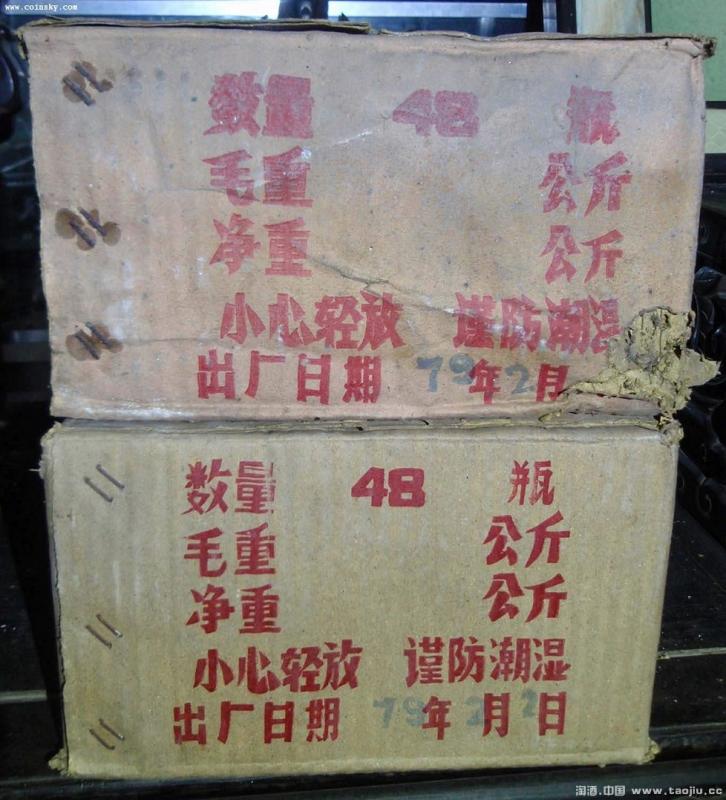 www.coinsky.com
数量 48 瓶
毛重 公斤
净重 公斤
小心轻放 谨防潮湿
出厂日期 79年2月
数量 48 瓶
毛重 公斤
净重 公斤
小心轻放 谨防潮湿
出厂日期 79年2月2日
淘酒.中国 www.taojiu.cc